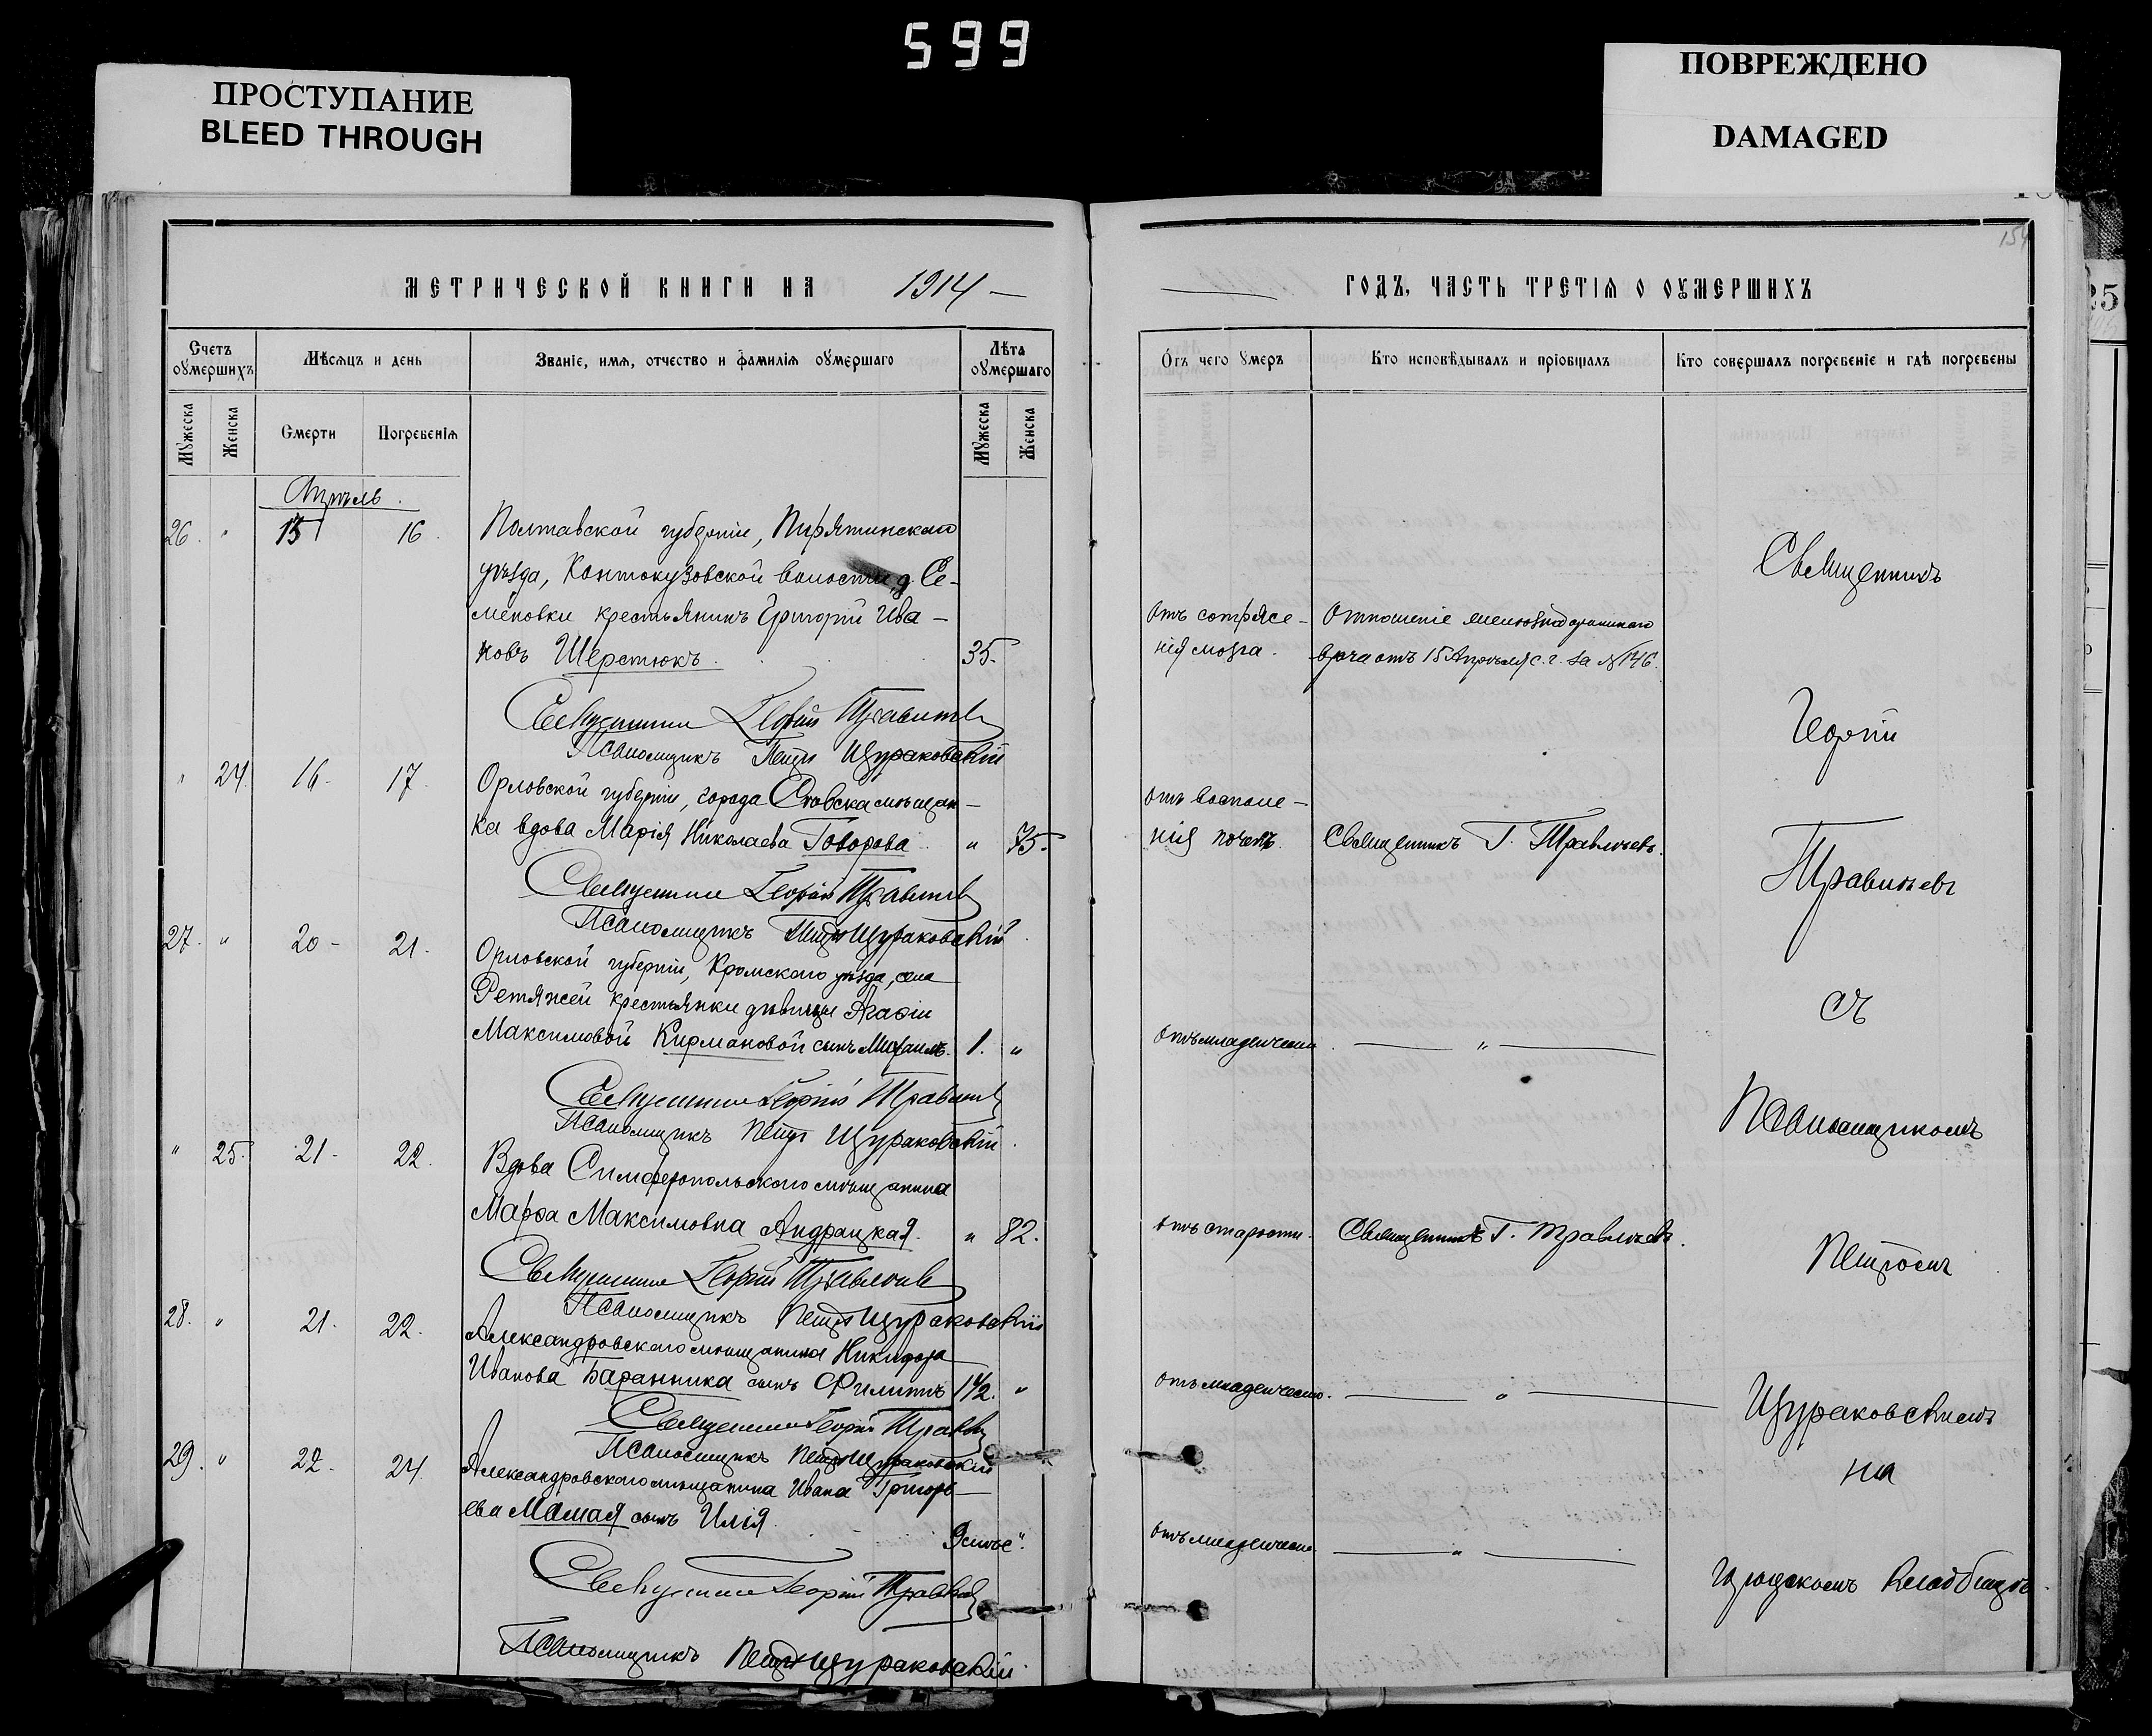 599
ПРОСТУПАНИЕ
BLEED THROUGH
ПОВРЕЖДЕНО
DAMAGED
154
25
МЕТРИЧЕСКОЙ КНИГИ НА 1914 —
Счетъ оумершихъ
Мѣсяцъ и день
Званіе, имя, отчество и фамилія оумершаго
Лѣта оумершаго
Мужеска
Женска
Смерти
Погребенія
Мужеска
Женска
Апрѣль.
26. " 15 16.
Полтавской губерніи, Пирятинскаго
уѣзда, Кантокузовской волости д. Се-
меновки крестьянинъ Григорій Ива-
новъ Шерстюкъ. 35.
Священникъ Георгій Травлѣевъ
Псаломщикъ Петръ Щураковскій
" 24. 16- 17.
Орловской губерніи, города Сѣвска мѣщан-
ка вдова Марія Николаева Говорова " 75.
Священникъ Георгій Травлѣевъ
Псаломщикъ Петръ Щураковскій
27. " 20- 21.
Орловской губерніи, Кромскаго уѣзда, села
Ретяжей крестьянки дѣвицы Агафіи
Максимовой Кирмановой сынъ Михаилъ. 1. "
Священникъ Георгій Травлѣевъ
Псаломщикъ Петръ Щураковскій
" 25. 21- 22.
Вдова Симферопольскаго мѣщанина
Марѳа Максимовна Андрацкая. " 82.
Священникъ Георгій Травлѣевъ
Псаломщикъ Петръ Щураковскій
28. " 21- 22.
Александровскаго мѣщанина Никифора
Иванова Баранника сынъ Филиппъ 1½. "
Священникъ Георгій Травлѣевъ
Псаломщикъ Петръ Щураковскій
29. " 22- 24.
Александровскаго мѣщанина Ивана Григорь-
ева Мамая сынъ Илія.
Священникъ Георгій Травлѣевъ
Псаломщикъ Петръ Щураковскій
ГОДЪ, ЧАСТЬ ТРЕТІЯ О ОУМЕРШИХЪ
Отъ чего умеръ
Кто исповѣдывалъ и пріобщалъ
Кто совершалъ погребеніе и гдѣ погребены
отъ сотрясе-
нія мозга.
Отношеніе
врача отъ 15 Апрѣля с. г. за №146.
отъ воспале-
нія почекъ. Священникъ Г. Травлѣевъ.
отъ младенческой — " —
отъ старости. Священникъ Г. Травлѣевъ.
отъ младенческой. — " —
отъ младенческой — " —
Священникъ
Георгій
Травлѣевъ
съ
Псаломщикомъ
Петромъ
Щураковскимъ
на
городскомъ кладбищѣ.